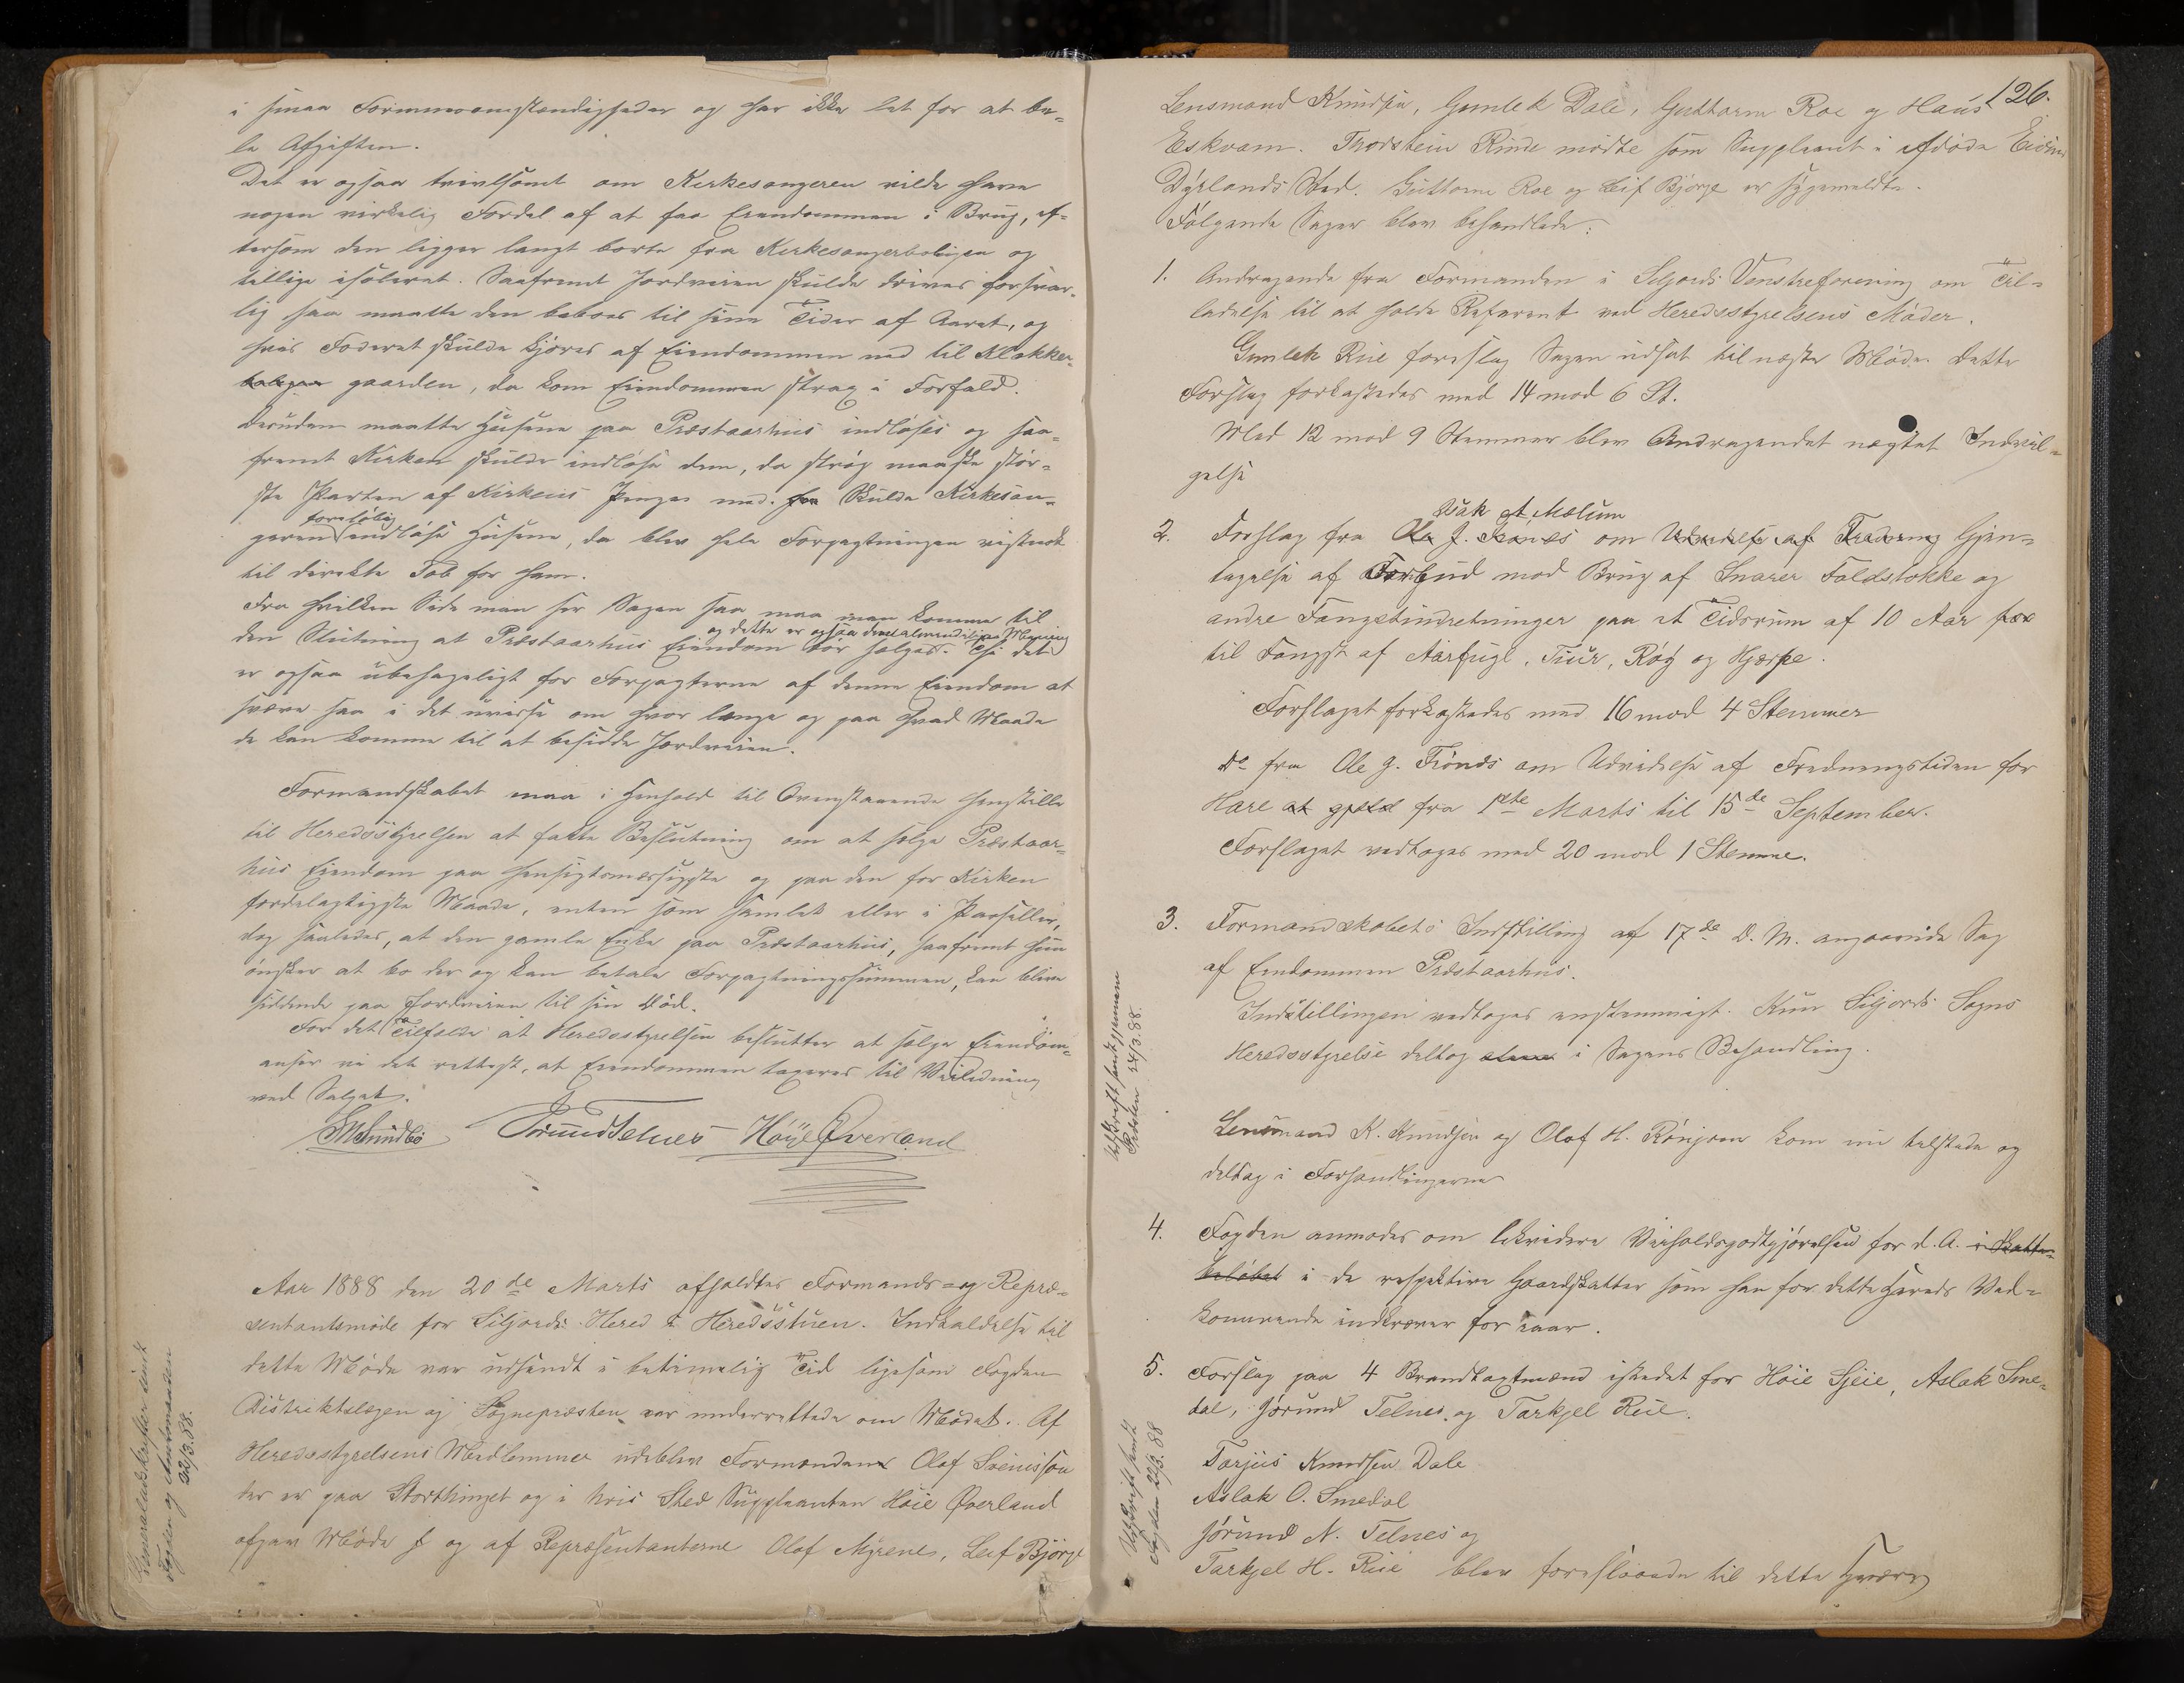 i smaa Formuesomstændigheder og har ikke let for at be-
le Afgiften.
Det er ogsaa tvivlsomt om Kirkesangeren vilde have
nogen virkelig Fordel af at faa Eiendommen i Brug, ef-
tersom den ligger langt borte fra Kirkesangerboligen og
tillige isoleret. Saafremt Jordveien skulde drives forsvar-
lig saa maatte den beboes til sine Tider af Aaret, og
hvis Foderet skulde kjøres af Eiendommen ned til Klokker-
gaarden, da kom Eiendommen strax i Forfald.
Desuden maatte Husene paa Præstaarhus indløses og saa-
fremt Kirken skulde indløse dem, da strøg maaske stør-
ste Parten af Kirkens Penger med. Skulde Kirkesan-
geren foreløbig indløse Husene, da blev hele Forpagtningen vistnok
til direkte Tab for ham.
Fra hvilken Side man ser Sagen saa maa man komme til
den Slutning at Præstaarhus Eiendom bør sælges. og dette er ogsaa den almindelige Mening Thi det
er ogsaa ubehageligt for Forpagterne af denne Eiendom at
svæve saa i det uvisse om hvor længe og paa hvad Maade
de kan komme til at besidde Jordveien.
Formandskabet maa i Henhold til Ovenstaaende henstille
til Heredsstyrelsen at fatte Beslutning om at sælge Præstaar-
hus Eiendom paa hensigtsmæssigste og paa den for Kirken
fordelagtigste Maade, enten som samlet eller i Parseller,
dog saaledes, at den gamle Enke paa Præstaarhus, saafremt hun
ønsker at bo der og kan betale Forpagtningssummen, kan blive
siddende paa Jordveien til sin Død.
For det Tilfælde at Heredsstyrelsen beslutter at sælge Eiendom-
anser vi det rettest, at Eiendommen taxeres til Veiledning
ved Salget.
Sundbø Jørund Telnes Høye Øverland
Aar 1888 den 20de Marts afholdtes Formands- og Repræ-
sentantsmøde for Siljords Hered i Heredsstuen. Indkaldelse til
dette Møde var udsendt i betimelig Tid ligesom Fogden
Distriktslægen og Sognepræsten var underrettede om Mødet. Af
Heredsstyrelsens Medlemmer udeblev Formanden Olaf Sveinsson
der er paa Storthinget og i hvis Sted Suppleanten Høie Øverland
afgav Møde og af Repræsentanterne Olaf Myrene, Leif Bjørge
Generaludskrifter sendt
Fogden og Amtmanden
22/3.88.
126.
Lensmand Knudsen, Gunlek Dale, Guttorm Roe og Hans
Eskvam. Thorstein Rinde mødte som Suppleant i afdøde
Dyrlands Sted. Guttorm Roe og Leif Bjørge er sygemeldte.
Følgende Sager blev behandlede:
1. Andragende fra Formanden i Seljords Venstreforening om Til-
ladelse til at holde Referent ved Heredsstyrelsens Møder.
Gunlek Rue foreslog Sagen udsat til næste Møde. Dette
Forslag forkastedes med 14 mod 6 St.
Med 12 mod 9 Stemmer blev Andragendet nægtet Indvil-
gelse
2. Forslag fra om Gjen-
tagelse af Forbud mod Brug af Snarer Faldstokke og
andre Fangstindretninger paa et Tidsrum af 10 Aar
til Fangst af Aarfugl, Tiur, Røy og Hjerpe.
Forslaget forkastedes med 16 mod 4 Stemmer
Do fra Ole J. Trønæs om Udvidelse af Fredningstiden for
Hare fra 1ste Marts til 15de September.
Forslaget vedtoges med 20 mod 1 Stemme.
3. Formandskabets Indstilling af 17de D. M. angaaende Sag
af Eiendommen Præstaarhus.
Indstillingen vedtoges enstemmigt. Kun Siljords Sogns
Heredsstyrelse deltog i Sagens Behandling.
Udskrift sendt
24/3.88.
Lensmand K. Knudsen og Olaf H. kom nu tilstede og
deltog i Forhandlingerne
4. Fogden anmodes om likvidere Veiholdsgodtgjørelsen for d. A.
i de respektive Gaardskatter som han for dette Hereds Ved-
kommende indkræver for iaar.
Udskrift sendt
Fogden 22/3.88
5. Forslag paa 4 Brandtaxtmænd istedet for Høie Gjeie, Aslak Sme-
dal, Jørund Telnes og Tarkjel Rue.
Tarjus Knudsen Dale
Aslak O. Smedal
Jørund N. Telnes og
Tarkjel H. Rue blev foreslaaede til dette Hverv